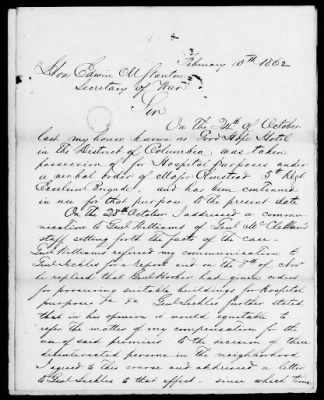 February 10th 1862
Hon Edwin M Stanton
Secretary of War
Sir
On the 24th of October
last my house known as Good Hope Hotel
in the District of Columbia, was taken
possession of for Hospital purposes under
a verbal order of Major Olmstead 5th Regt
Excelsior Brigade, and has been continued
in use for that purpose to the present date
On the 28th October I addressed a commu-
nication to Genl Williams of Genl McClellan's
staff setting forth the facts of the case
Genl Williams referred my communication to
Genl Sickles for Report and on the 7th of Nov
he replied that Genl Hooker had given orders
for procuring suitable buildings for hospital
purposes &c &c Genl Sickles further stated
that in his opinion it would equitable to
refer the matter of my compensation for the
use of said premises to the decision of three
disinterested persons in the neighborhood
I agreed to this course and addressed a letter
to Genl Sickles to that effect, since which time